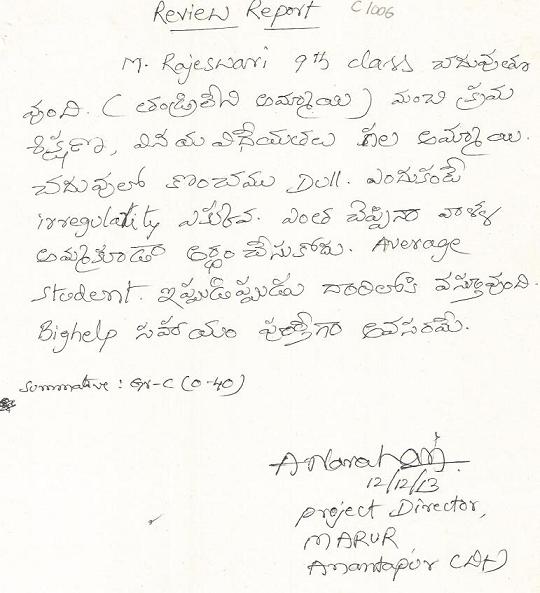 Review Report C1006
M. Rajeswari 9th class చదువుతూ
వుంది. (తండ్రిలేని అమ్మాయి) మంచి క్రమ
శిక్షణా, వినయ విధేయతలు గల అమ్మాయి.
చదువులో కొంచము Dull. ఎందుకంటే
irregulatity ఎక్కువ. ఎంత చెప్పినా వాళ్ళ
అమ్మకూడా అర్థం చేసుకోదు. Average
student. ఇప్పుడిప్పుడు దారిలోకి వస్తూవుంది.
Bighelp సహాయం పూర్తిగా అవసరమే.
Summative : Gr-C (0-40)
12/12/13
project Director,
MARUR
Anantapur (Dt)